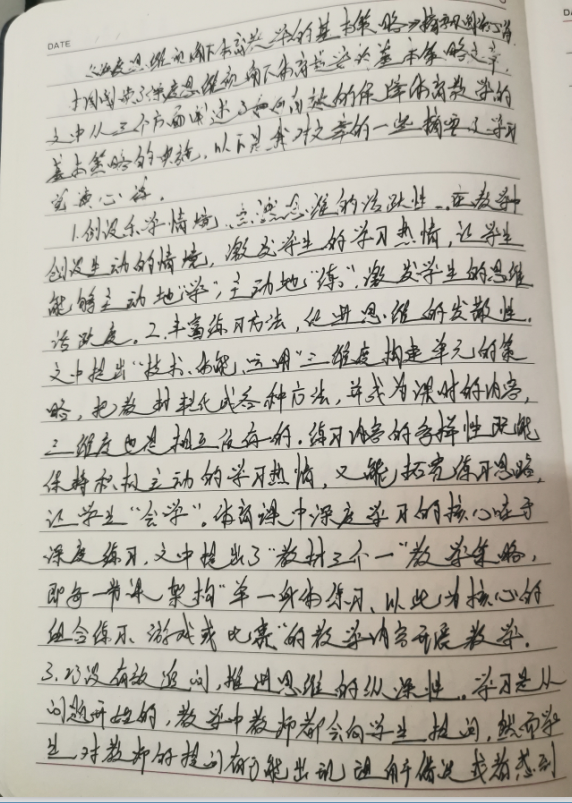 DATE
《深度思维视阈下体育教学的基本策略》摘要
读了深度思维视阈下体育教学的基本策略文章,
文中从三个方面阐述了如何有效的保障体育教学的
基本策略的实施,以下是我对文章的一些摘要及学习
心得。
1.创设乐学情境,思维的活跃性。在教学中
创设生动的情境,激发学生的学习热情,让学生
能够主动地“学”,主动地“练”,激发学生的思维
活跃度。2.丰富练习方法,促进思维的发散性。
文中提出“技术、体能、运用”三维度构建单元的策
略,把教材划成各种方法,并成为课时的内容,
三维度也是相互依存的。练习内容的多样性既能
保持积极主动的学习热情,又能拓宽练习思路,
让学生“会学”。体育课中深度学习的核心在于
深度练习,文中提出了“教材三个一”教学策略,
即每一节课架构“单一身体练习、以此为核心的
组合练习、游戏或比赛”的教学内容开展教学。
3.巧设有效追问,推进思维的纵深性。学习是从
问题开始的,教学中教师都会向学生提问,然而学
生对教师的提问有可能出现理解偏差或者感到